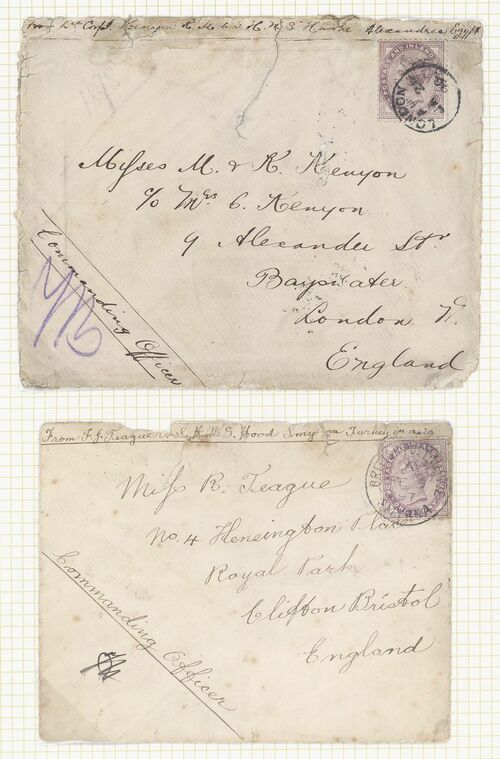 From Lce Corpl. Kenyon R. M. L. I. H. M. S. Hawke Alexandria Egypt
POSTAGE AND INLAND
LONDON
Misses M. & K. Kenyon
c/o Mrs C. Kenyon
9 Alexander Str
Bayswater
London W.
England
Commanding Officer
From F. J. Teague H. M. S. Hood Smyrna Turkey in asia
Miss R. Teague
No. 4 Kensington Place
Royal Park
Clifton Bristol
England
Commanding Officer